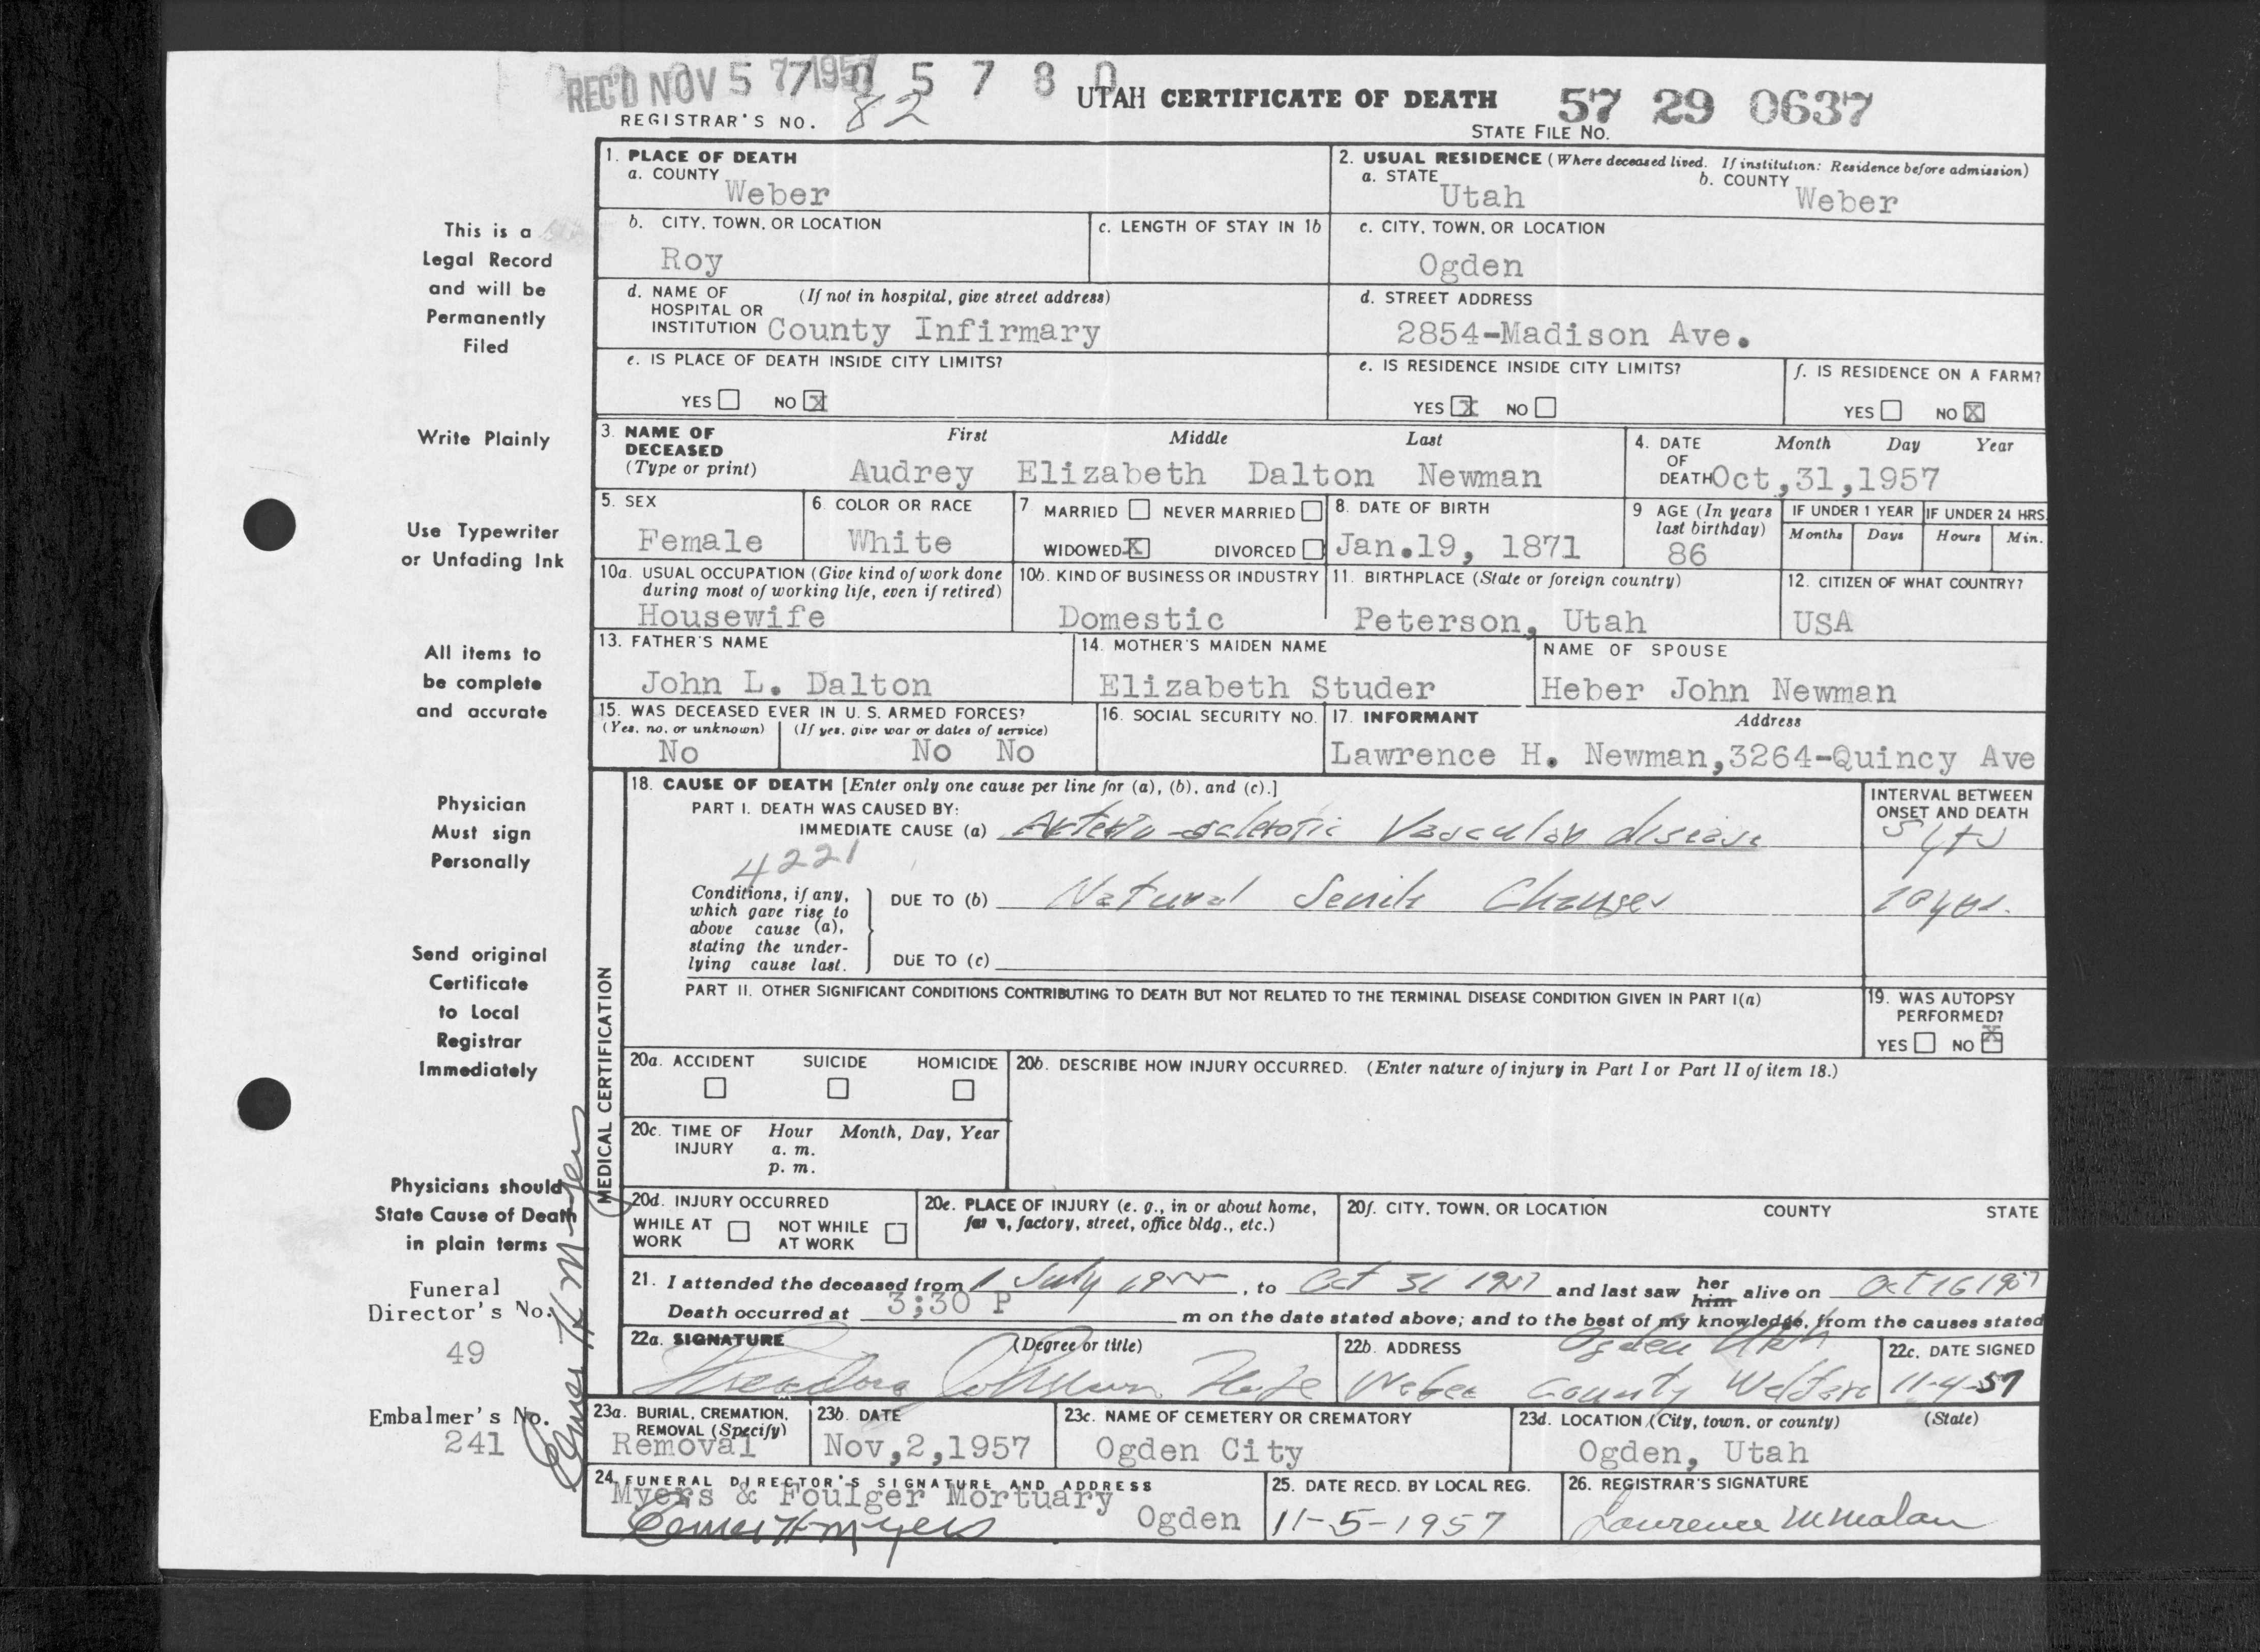 REC'D NOV 5 1957
7 7 0 5 7 8 0
REGISTRAR'S NO. 82
UTAH CERTIFICATE OF DEATH
57 29 0637
STATE FILE NO.
1. PLACE OF DEATH
a. COUNTY
Weber
2. USUAL RESIDENCE (Where deceased lived. If institution: Residence before admission)
a. STATE
Utah
b. COUNTY
Weber
b. CITY, TOWN, OR LOCATION
Roy
c. LENGTH OF STAY IN 1b
c. CITY, TOWN, OR LOCATION
Ogden
d. NAME OF (If not in hospital, give street address)
HOSPITAL OR
INSTITUTION County Infirmary
d. STREET ADDRESS
2854-Madison Ave.
e. IS PLACE OF DEATH INSIDE CITY LIMITS?
YES NO X
e. IS RESIDENCE INSIDE CITY LIMITS?
YES X NO
f. IS RESIDENCE ON A FARM?
YES NO X
3. NAME OF DECEASED
(Type or print)
First Middle Last
Audrey Elizabeth Dalton Newman
4. DATE OF DEATH
Month Day Year
Oct,31,1957
5. SEX
Female
6. COLOR OR RACE
White
7 MARRIED NEVER MARRIED
WIDOWED X DIVORCED
8. DATE OF BIRTH
Jan.19, 1871
9 AGE (In years last birthday)
86
IF UNDER 1 YEAR
Months Days
IF UNDER 24 HRS.
Hours Min.
10a. USUAL OCCUPATION (Give kind of work done
during most of working life, even if retired)
Housewife
10b. KIND OF BUSINESS OR INDUSTRY
Domestic
11. BIRTHPLACE (State or foreign country)
Peterson, Utah
12. CITIZEN OF WHAT COUNTRY?
USA
13. FATHER'S NAME
John L. Dalton
14. MOTHER'S MAIDEN NAME
Elizabeth Studer
NAME OF SPOUSE
Heber John Newman
15. WAS DECEASED EVER IN U. S. ARMED FORCES?
(Yes, no, or unknown) (If yes, give war or dates of service)
No No No
16. SOCIAL SECURITY NO.
17. INFORMANT Address
Lawrence H. Newman,3264-Quincy Ave
MEDICAL CERTIFICATION
18. CAUSE OF DEATH [Enter only one cause per line for (a), (b), and (c).]
PART I. DEATH WAS CAUSED BY:
IMMEDIATE CAUSE (a) Arterio-sclerotic Vascular disease
INTERVAL BETWEEN
ONSET AND DEATH
5 yrs
4221
Conditions, if any,
which gave rise to
above cause (a),
stating the under-
lying cause last.
DUE TO (b) Natural Senile Changes
10 yrs.
DUE TO (c)
PART II. OTHER SIGNIFICANT CONDITIONS CONTRIBUTING TO DEATH BUT NOT RELATED TO THE TERMINAL DISEASE CONDITION GIVEN IN PART I(a)
19. WAS AUTOPSY
PERFORMED?
YES NO X
20a. ACCIDENT SUICIDE HOMICIDE
20b. DESCRIBE HOW INJURY OCCURRED. (Enter nature of injury in Part I or Part II of item 18.)
20c. TIME OF INJURY
Hour Month, Day, Year
a. m.
p. m.
20d. INJURY OCCURRED
WHILE AT WORK
NOT WHILE AT WORK
20e. PLACE OF INJURY (e. g., in or about home,
farm, factory, street, office bldg., etc.)
20f. CITY, TOWN, OR LOCATION COUNTY STATE
21. I attended the deceased from 1 July 1955, to Oct 31 1957 and last saw her him alive on Oct 16 1957
Death occurred at 3;30 P m on the date stated above; and to the best of my knowledge, from the causes stated
22a. SIGNATURE (Degree or title)
22b. ADDRESS
Ogden Utah
Weber County Welfare
22c. DATE SIGNED
11-4-57
23a. BURIAL, CREMATION,
REMOVAL (Specify)
Removal
23b. DATE
Nov,2,1957
23c. NAME OF CEMETERY OR CREMATORY
Ogden City
23d. LOCATION (City, town, or county) (State)
Ogden, Utah
24. FUNERAL DIRECTOR'S SIGNATURE AND ADDRESS
Myers & Foulger Mortuary
Elmer H Myers Ogden
25. DATE RECD. BY LOCAL REG.
11-5-1957
26. REGISTRAR'S SIGNATURE
Lawrence M Malan
This is a
Legal Record
and will be
Permanently
Filed
Write Plainly
Use Typewriter
or Unfading Ink
All items to
be complete
and accurate
Physician
Must sign
Personally
Send original
Certificate
to Local
Registrar
Immediately
Physicians should
State Cause of Death
in plain terms
Funeral
Director's No.
49
Embalmer's No.
241
Elmer H Myers